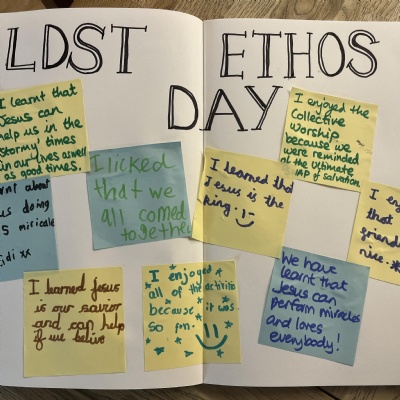 LDST ETHOS
DAY
I learnt that
Jesus can
help us in the
stormy times
in our lives aswell
as good times.
I enjoyed the
Collective
Worship
because we
were reminded
of the Ultimate
MAP of salvation.
I licked
that we
all comed
together
I learned that
Jesus is the
King.
about
us doing
5 miricale
xx
I enjoy
that
friends
nice.
I learned Jesus
is our savior
and can help
if we belive
I enjoyed
all of the activitis
because it was
so fun.
We have
learnt that
Jesus can
perform miracles
and loves
everybody!